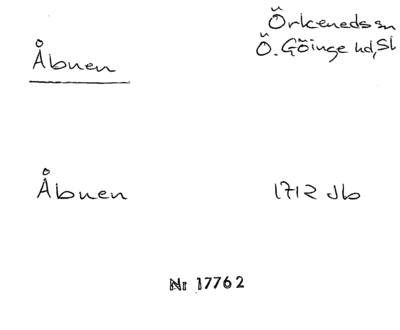 Åbnen
Örkeneds sn
Ö. Göinge hd, Sk
Åbnen
1712 Jb
Nr 17762